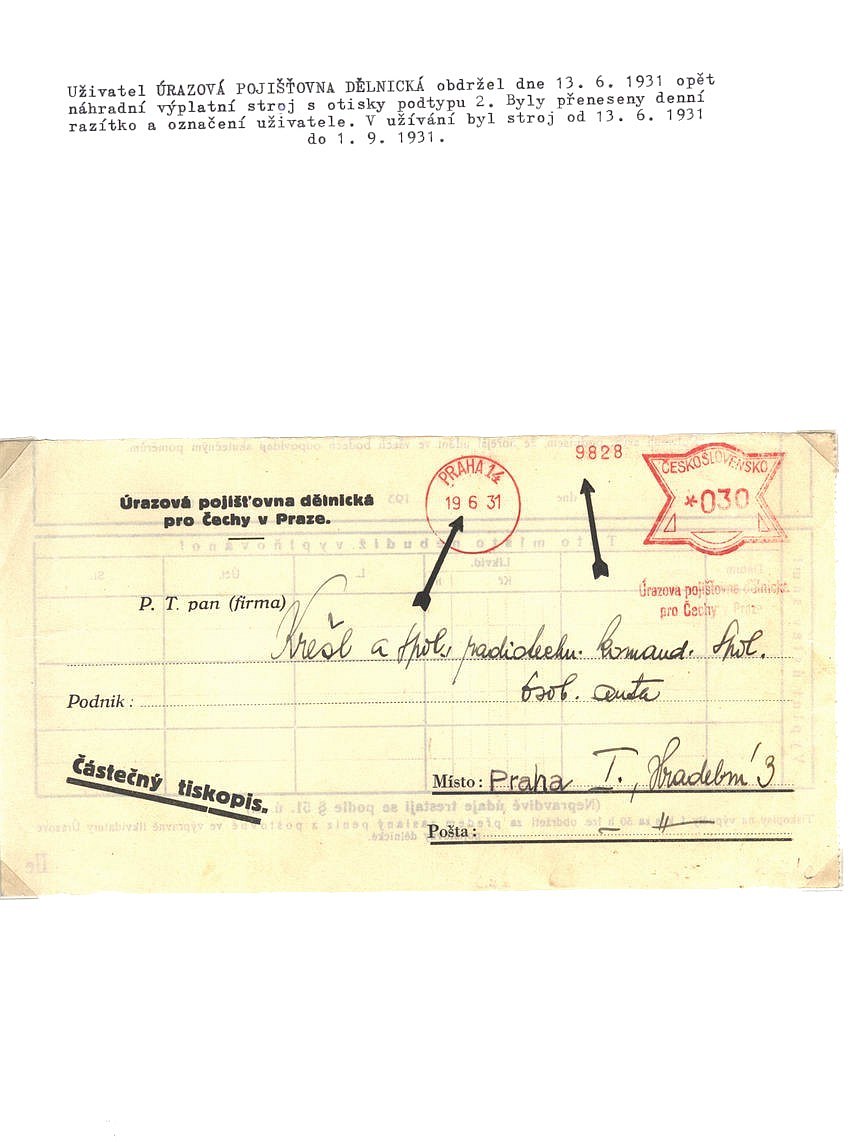 Uživatel ÚRAZOVÁ POJIŠŤOVNA DĚLNICKÁ obdržel dne 13. 6. 1931 opět
náhradní výplatní stroj s otisky podtypu 2. Byly přeneseny denní
razítko a označení uživatele. V užívání byl stroj od 13. 6. 1931
do 1. 9. 1931.
9828
PRAHA 14
19 6 31
ČESKOSLOVENSKO
*030
Úrazová pojišťovna dělnická
pro Čechy v Praze.
Úrazova pojišťovna dělnická
pro Čechy v Praze
P. T. pan (firma)
Krešl a spol. radiotechn. komand. spol.
Podnik:
osob.
Částečný tiskopis.
Místo: Praha I., Hradební 3
Pošta: – " –